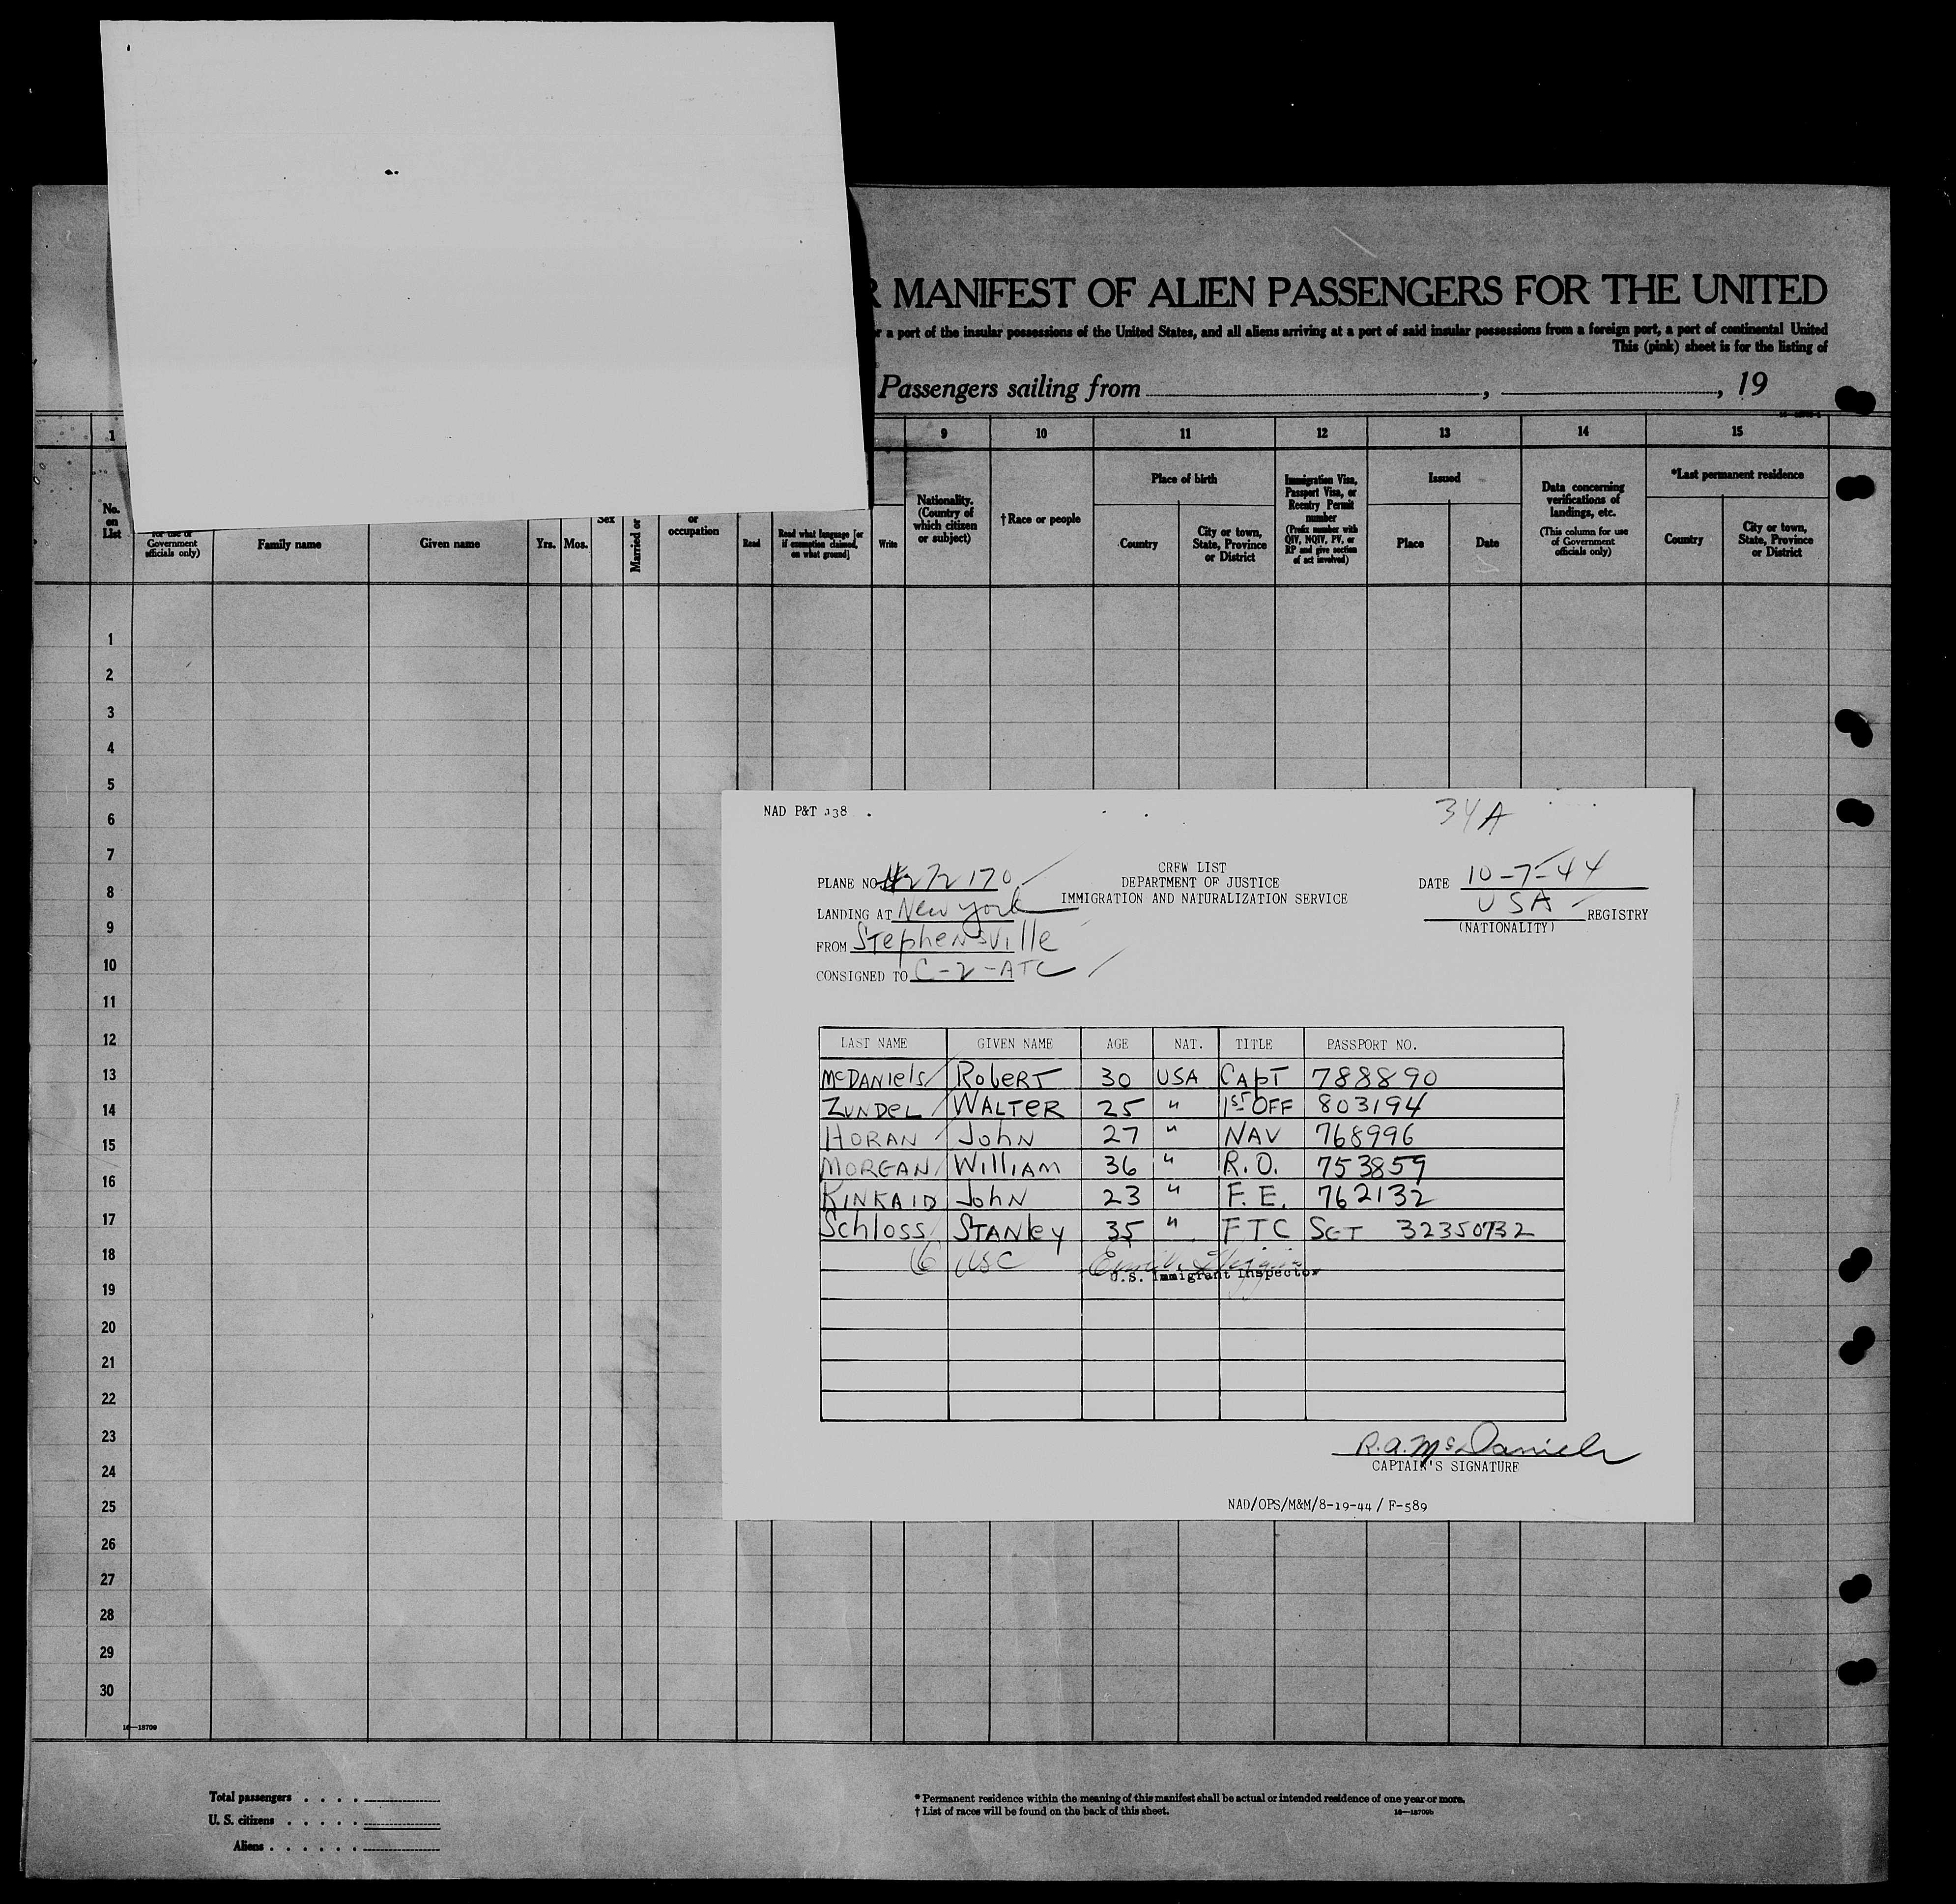 MANIFEST OF ALIEN PASSENGERS FOR THE UNITED
a port of the insular possessions of the United States, and all aliens arriving at a port of said insular possessions from a foreign port, a port of continental United
This (pink) sheet is for the listing of
Passengers sailing from , , 19
1 9 10 11 12 13 14 15
No. on List
for use of Government officials only)
Family name
Given name
Yrs.
Mos.
Sex
Married or
or occupation
Read
Read what language [or if exemption claimed, on what ground]
Write
Nationality. (Country of which citizen or subject)
†Race or people
Place of birth
Country
City or town, State, Province or District
Immigration Visa, Passport Visa, or Reentry Permit number
(Prefix number with QIV, NQIV, PV, or RP and give section of act involved)
Issued
Place
Date
Data concerning verifications of landings, etc.
(This column for use of Government officials only)
*Last permanent residence
Country
City or town, State, Province or District
1
2
3
4
5
6
7
8
9
10
11
12
13
14
15
16
17
18
19
20
21
22
23
24
25
26
27
28
29
30
16—18709
NAD P&T 138
34A
CREW LIST
DEPARTMENT OF JUSTICE
IMMIGRATION AND NATURALIZATION SERVICE
PLANE NO. 272170
LANDING AT New York
FROM Stephensville
CONSIGNED TO C-2-ATC
DATE 10-7-44
USA REGISTRY
(NATIONALITY)
LAST NAME GIVEN NAME AGE NAT. TITLE PASSPORT NO.
McDANIELS ROBERT 30 USA CAPT 788890
ZUNDEL WALTER 25 " 1ST OFF 803194
HORAN JOHN 27 " NAV 768996
MORGAN WILLIAM 36 " R.O. 753859
KINKAID JOHN 23 " F.E. 762132
Schloss STANLEY 35 " FTC SGT 32350732
6 USC
U.S. Immigrant Inspector
R.A. McDaniels
CAPTAIN'S SIGNATURE
NAD/OPS/M&M/8-19-44 / F-589
Total passengers . . . .
U. S. citizens . . . . .
Aliens . . . . . .
* Permanent residence within the meaning of this manifest shall be actual or intended residence of one year or more.
† List of races will be found on the back of this sheet.
16—18709b